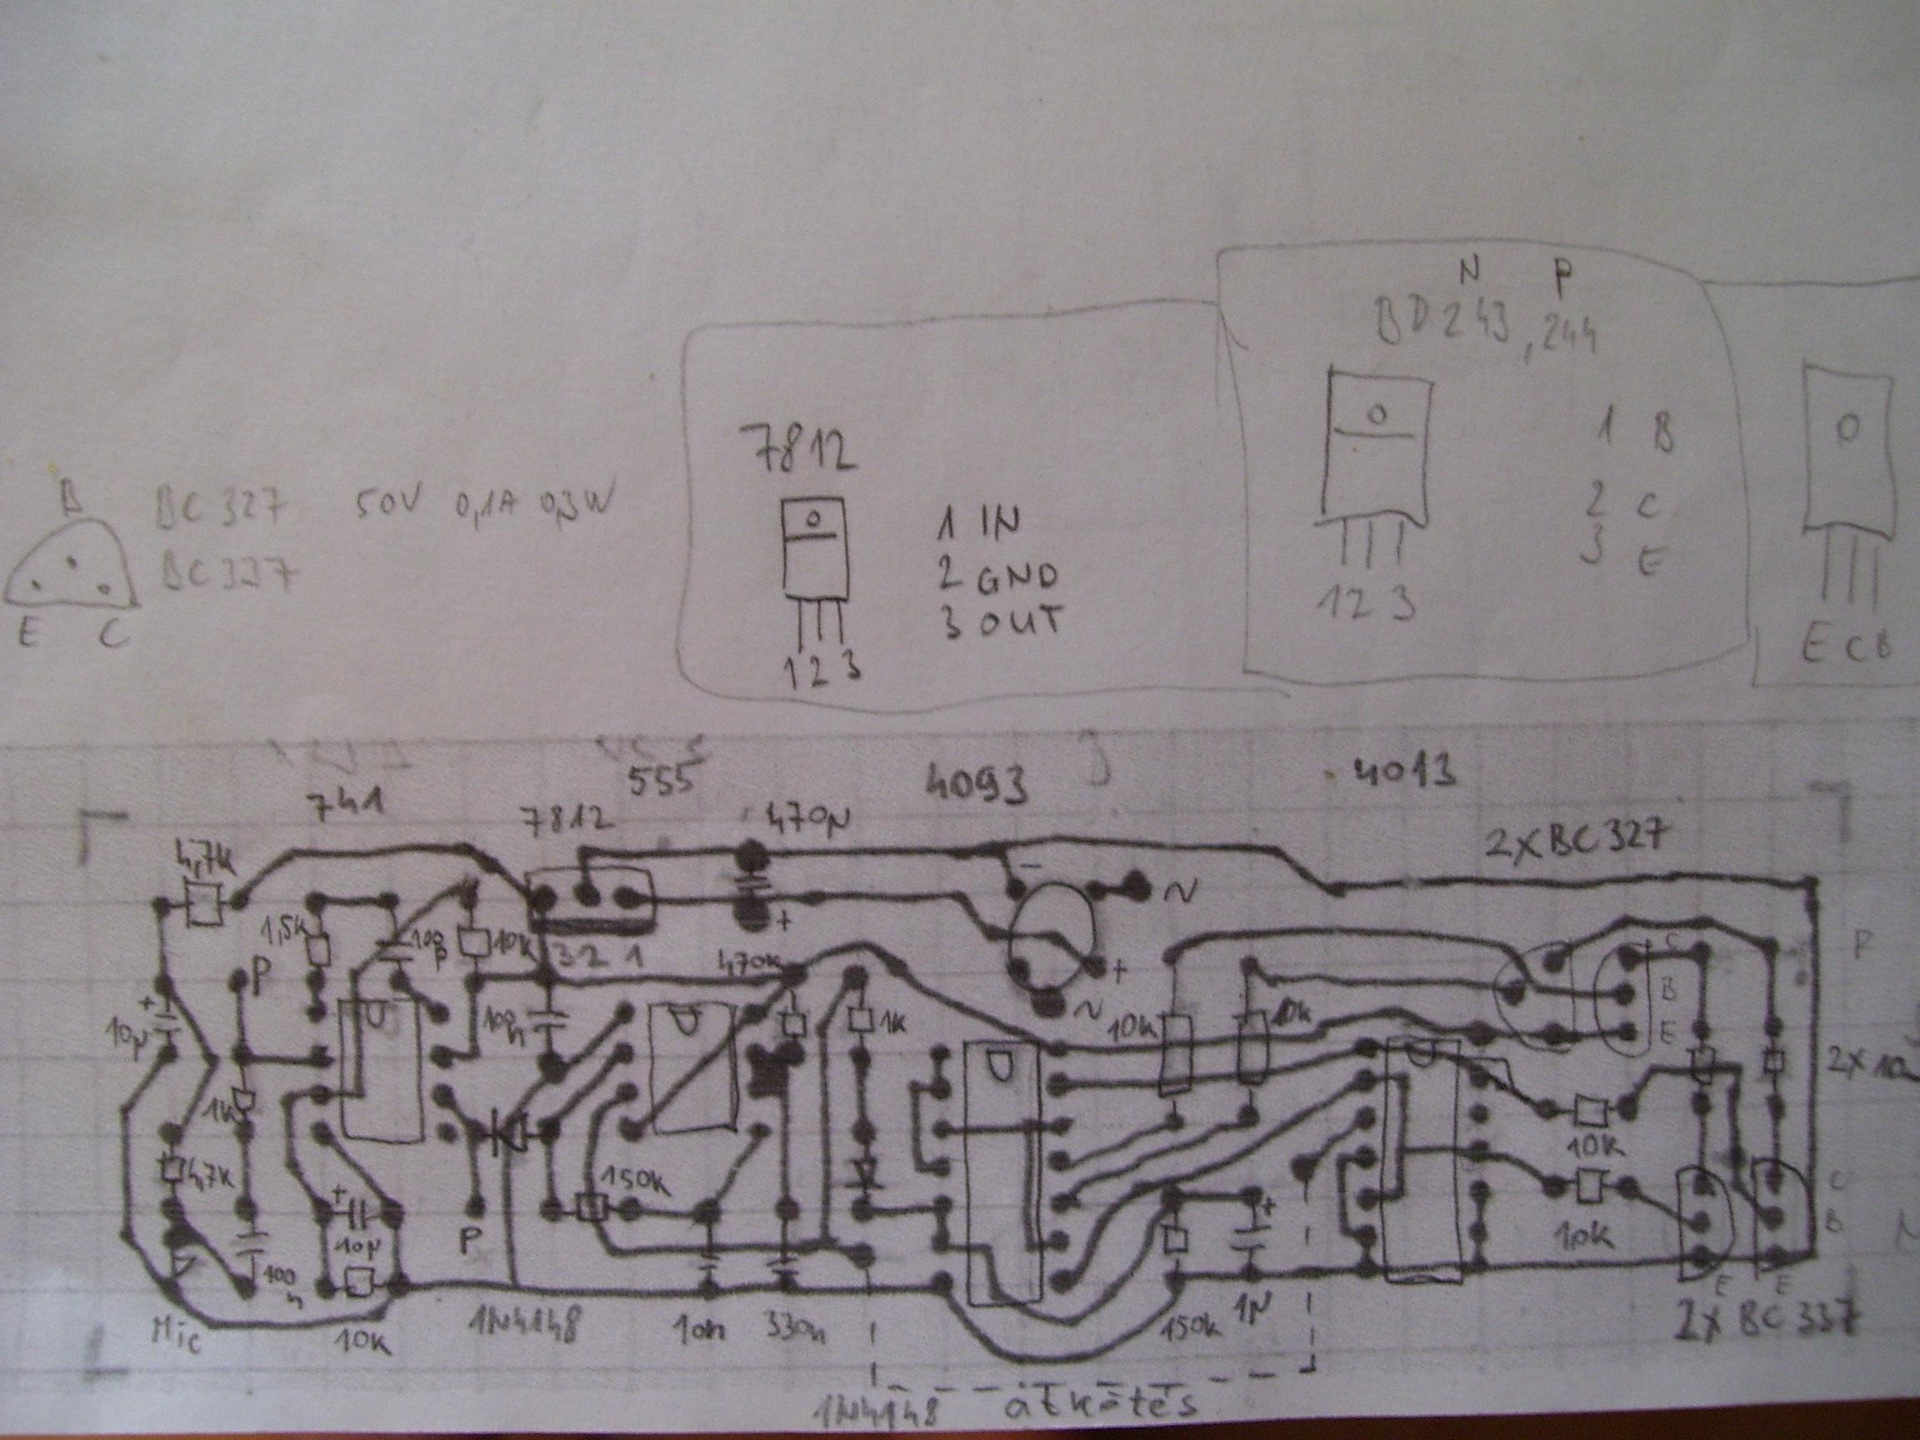 N P
BD 243, 244
1 B
2 C
3 E
1 2 3
E C B
7812
1 IN
2 GND
3 OUT
1 2 3
B
BC 327 50V 0,1A 0,3W
BC 337
E C
741
7812
555
470µ
4093
4013
2XBC 327
4,7K
1,5K
100p
10K
3 2 1
+
-
~
+
~
P
+
10µ
100n
470K
1K
10K
10K
C
B
E
P
1K
4,7K
+
10µ
P
150K
10K
10K
+
C
B
E
E
100n
Mic
10K
1N4148
10n
330n
150K
1µ
2X BC 337
1N4148
átkötés